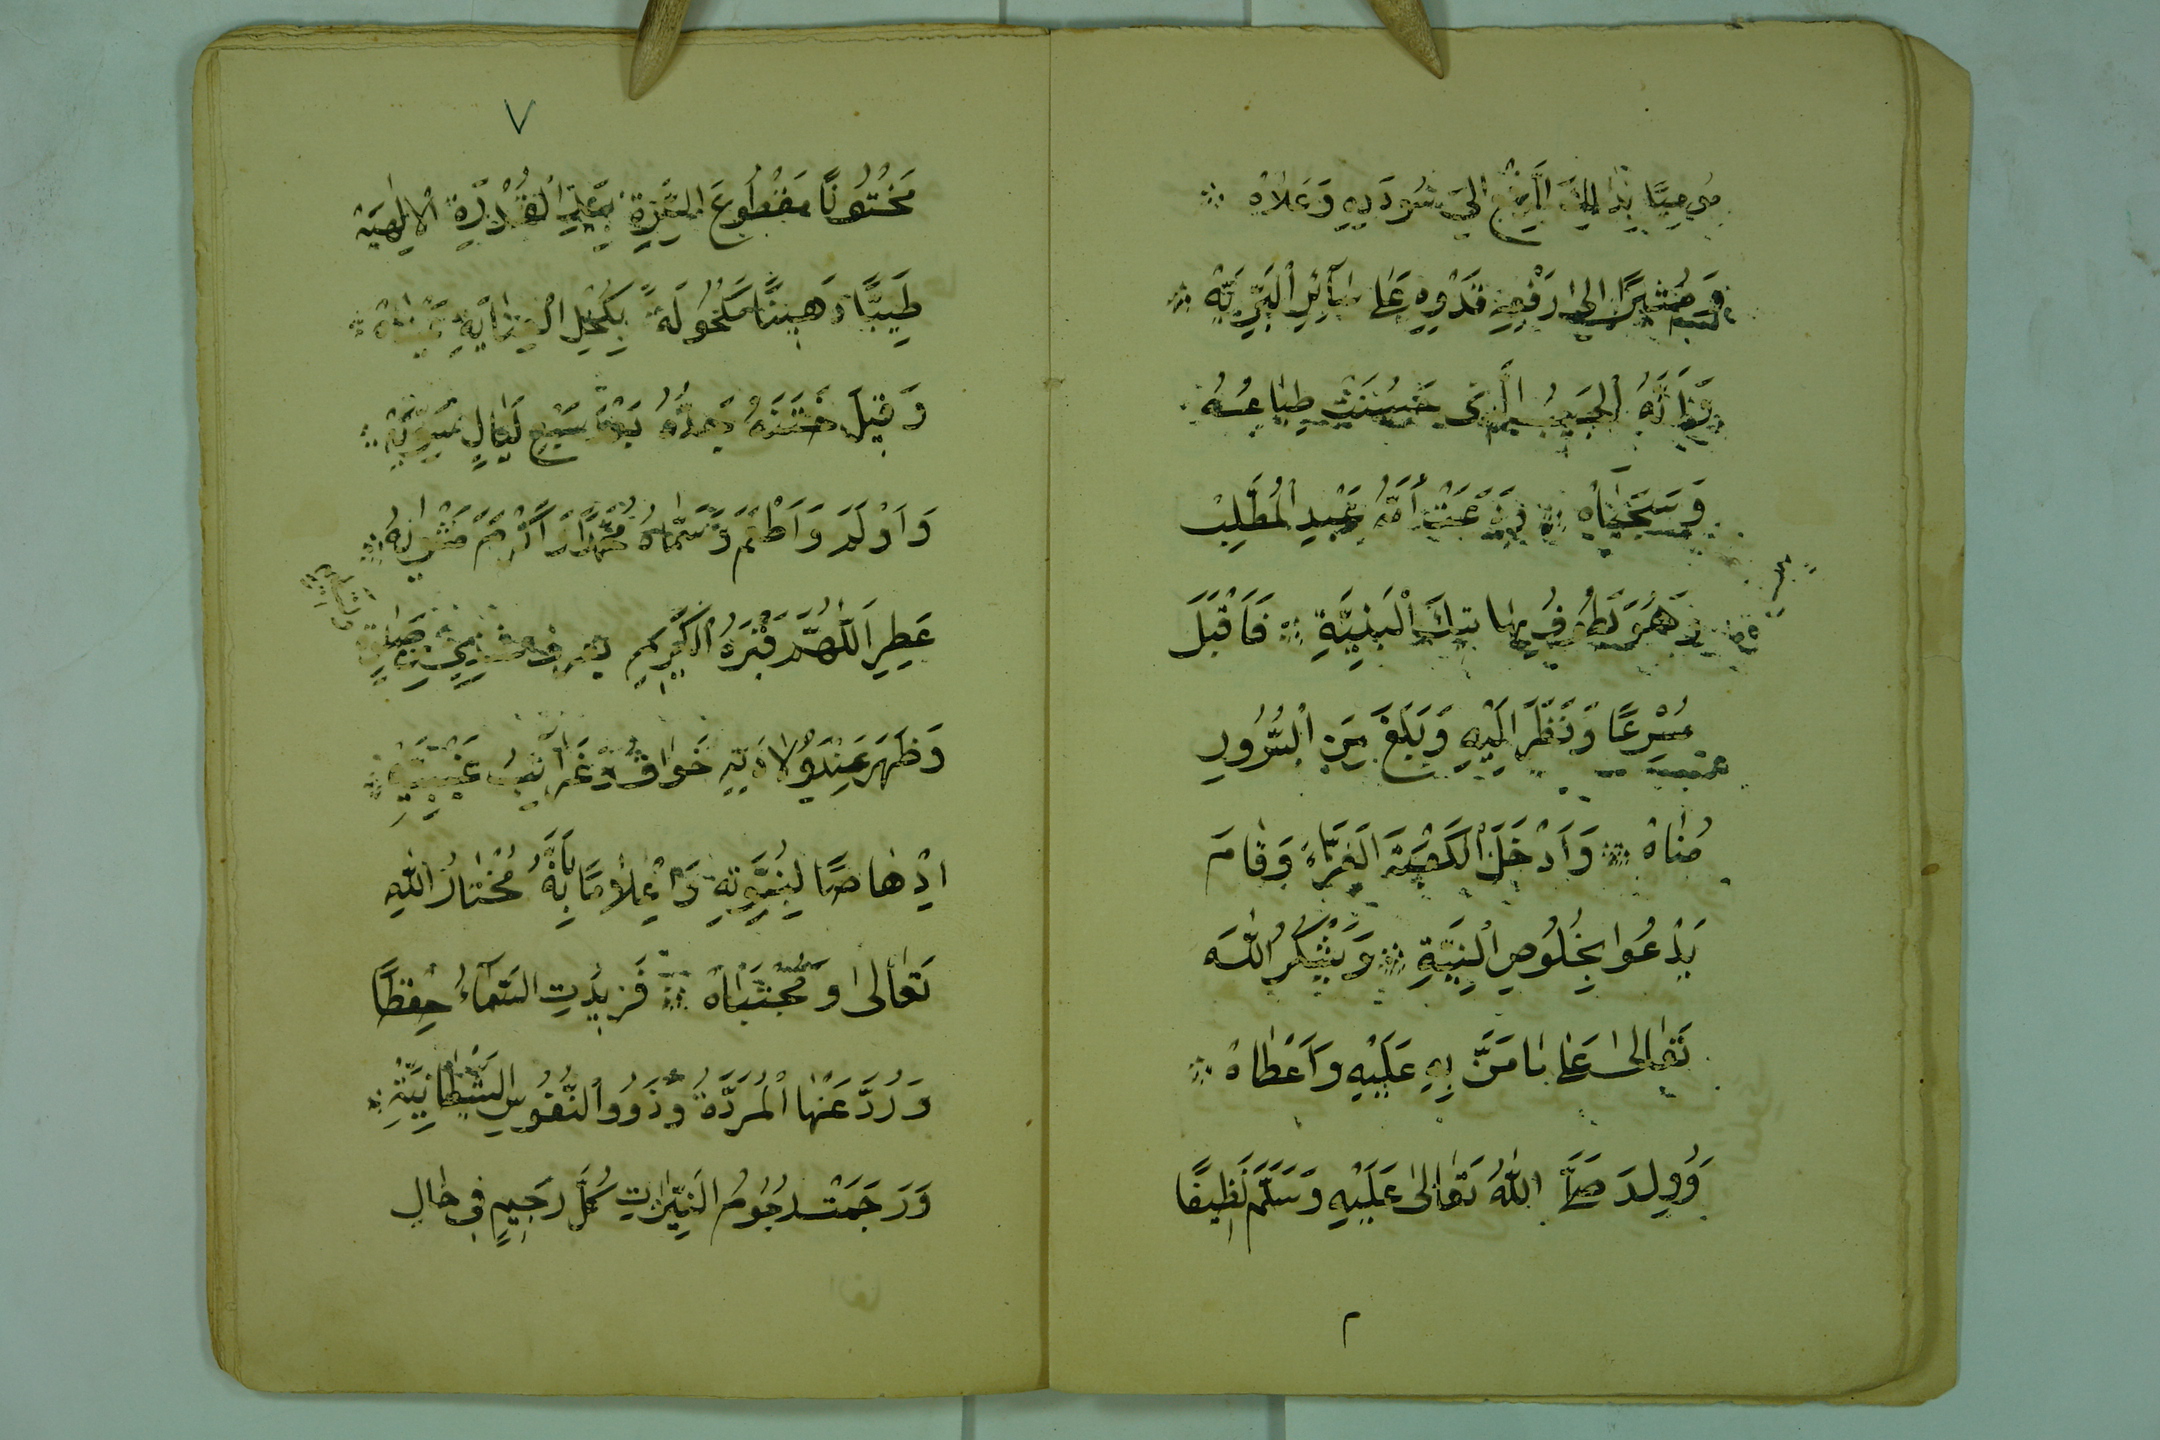 مُومِيًا بِذٰلِكَ الرَّفْعِ اِلٰى سُودَدِهِ وَعُلَاهُ ۞
وَمُشِيرًا اِلٰى رِفْعَةِ قَدْرِهِ عَلٰى سَآئِرِ الْبَرِيَّةِ ۞
وَاَنَّهُ الْحَبِيبُ الَّذِى حَسُنَتْ طِبَاعُهُ
وَسَجَايَاهُ ۞ وَدَعَتْ اُمُّهُ عَبْدَ الْمُطَّلِبْ
وَهُوَ يَطُوفُ بِهَاتِيكَ الْبَنِيَّةِ ۞ فَاَقْبَلَ
مُسْرِعًا وَنَظَرَ اِلَيْهِ وَبَلَغَ مِنَ السُّرُورِ
مُنَاهُ ۞ وَاَدْخَلَهُ الْكَعْبَةَ الْغَرَّاءَ وَقَامَ
يَدْعُوا بِخُلُوصِ النِّيَّةِ ۞ وَيَشْكُرُ اللّٰهَ
تَعَالٰى عَلٰى مَا مَنَّ بِهِ عَلَيْهِ وَاَعْطَاهُ ۞
وَوُلِدَ صَلَّى اللّٰهُ تَعَالٰى عَلَيْهِ وَسَلَّمَ نَظِيفًا
٢
٧
مَخْتُونًا مَقْطُوعَ السُّرَّةِ بِيَدِ الْقُدْرَةِ الْاِلٰهِيَّةِ
طَيِّبًا دَهِينًا مَكْحُولَةً بِكُحْلِ الْعِنَايَةِ عَيْنَاهُ ۞
وَقِيلَ خَتَنَهُ جَدُّهُ بَعْدَ سَبْعِ لَيَالٍ سَوِيَّةٍ ۞
وَاَوْلَمَ وَاَطْعَمَ وَسَمَّاهُ مُحَمَّدًا وَاَكْرَمَ مَثْوَاهُ ۞
عَطِّرِ اللّٰهُمَّ قَبْرَهُ الْكَرِيمَ بِعَرْفٍ شَذِىٍّ مِنْ صَلَاةٍ
وَتَسْلِيمٍ
وَظَهَرَ عِنْدَ وِلَادَتِهِ خَوَارِقُ وَغَرَائِبُ غَيْبِيَّةٍ ۞
اِرْهَاصًا لِنُبُوَّتِهِ وَاِعْلَامًا بِاَنَّهُ مُخْتَارُ اللّٰهِ
تَعَالٰى وَمُجْتَبَاهُ ۞ فَزِيدَتِ السَّمَآءُ حِفْظًا
وَرُدَّ عَنْهَا الْمَرَدَةُ وَذَوُوا النُّفُوسِ الشَّيْطَانِيَّةِ ۞
وَرَجَمَتْ رُجُومُ النَّيِّرَاتِ كُلَّ رَجِيمٍ فِى حَالِ